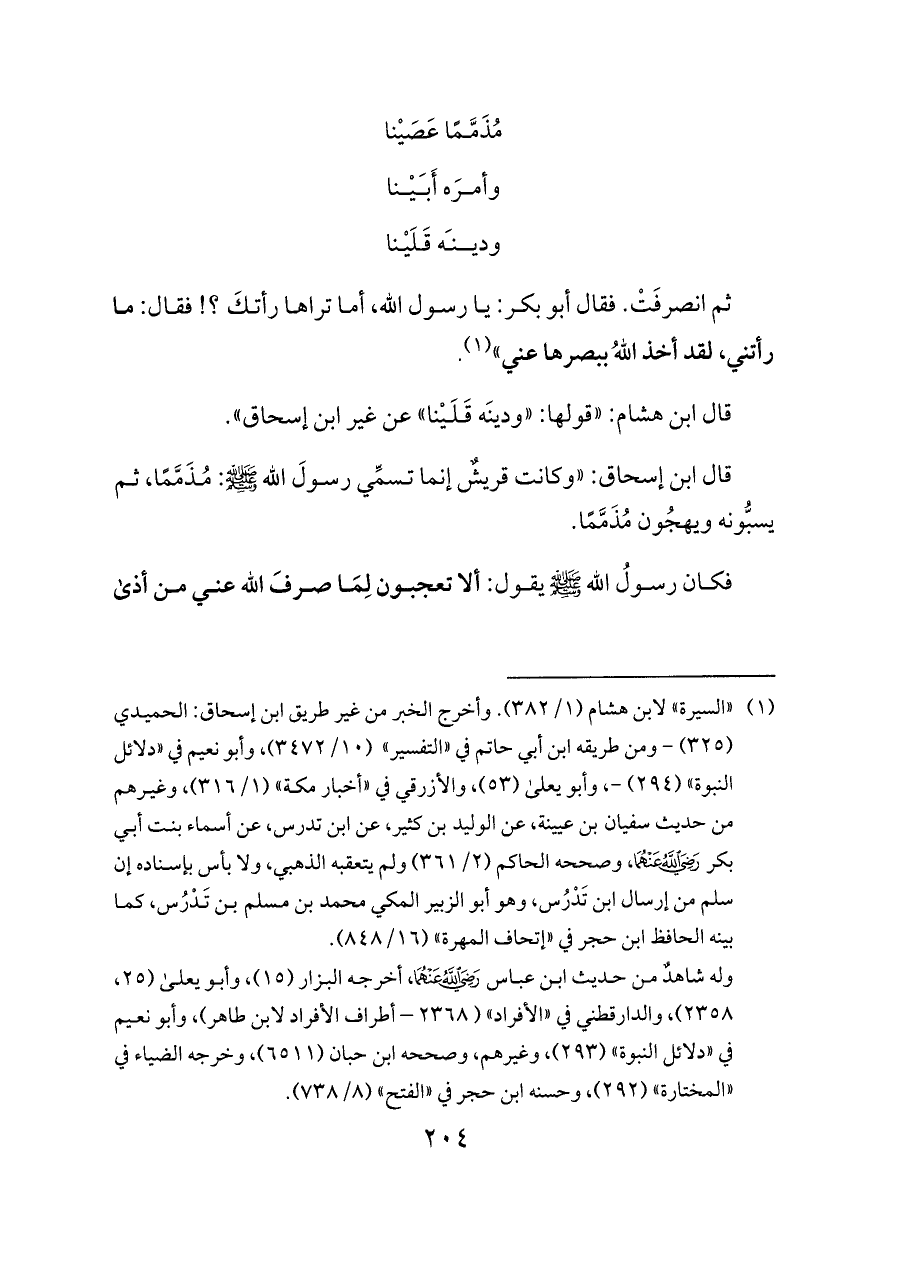 مُذَمَّمًا عَصَيْنا
وأمرَه أَبَيْنا
ودينَه قَلَيْنا
ثم انصرفَتْ. فقال أبو بكر: يا رسول الله، أما تراها رأتكَ ؟! فقال: ما
رأتني، لقد أخذ اللهُ ببصرها عني»(١).
قال ابن هشام: «قولها: «ودينَه قَلَيْنا» عن غير ابن إسحاق».
قال ابن إسحاق: «وكانت قريشٌ إنما تسمِّي رسولَ الله ﷺ: مُذَمَّمًا، ثم
يسبُّونه ويهجُون مُذَمَّمًا.
فكان رسولُ الله ﷺ يقول: ألا تعجبون لِمَا صرفَ الله عني من أذىٰ
(١) «السيرة» لابن هشام (١/ ٣٨٢). وأخرج الخبر من غير طريق ابن إسحاق: الحميدي
(٣٢٥) - ومن طريقه ابن أبي حاتم في «التفسير» (١٠/ ٣٤٧٢)، وأبو نعيم في «دلائل
النبوة» (٢٩٤) -، وأبو يعلىٰ (٥٣)، والأزرقي في «أخبار مكة» (١/ ٣١٦)، وغيرهم
من حديث سفيان بن عيينة، عن الوليد بن كثير، عن ابن تدرس، عن أسماء بنت أبي
بكر رَضِيَ اللَّهُ عَنْهُمَا، وصححه الحاكم (٢/ ٣٦١) ولم يتعقبه الذهبي، ولا بأس بإسناده إن
سلم من إرسال ابن تَدْرُس، وهو أبو الزبير المكي محمد بن مسلم بن تَدْرُس، كما
بينه الحافظ ابن حجر في «إتحاف المهرة» (١٦/ ٨٤٨).
وله شاهدٌ من حديث ابن عباس رَضِيَ اللَّهُ عَنْهُمَا، أخرجه البزار (١٥)، وأبو يعلىٰ (٢٥،
٢٣٥٨)، والدارقطني في «الأفراد» (٢٣٦٨ - أطراف الأفراد لابن طاهر)، وأبو نعيم
في «دلائل النبوة» (٢٩٣)، وغيرهم، وصححه ابن حبان (٦٥١١)، وخرجه الضياء في
«المختارة» (٢٩٢)، وحسنه ابن حجر في «الفتح» (٨/ ٧٣٨).
٢٠٤